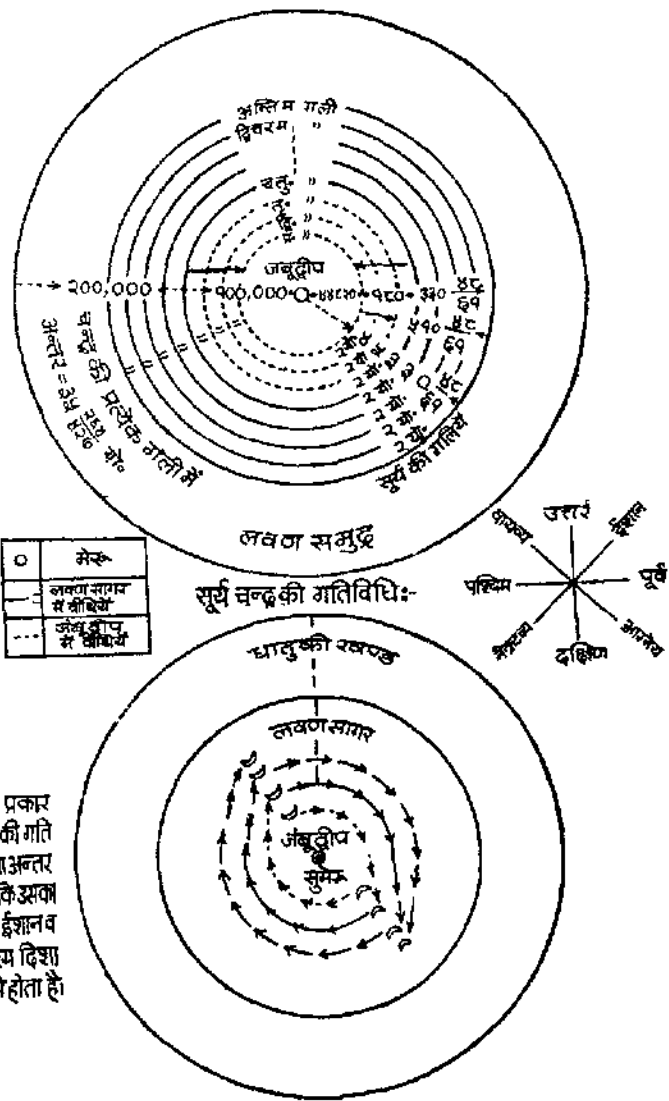 अन्तिम गली
द्विचरम "
चतु. "
तृ. "
द्वि "
प्र. "
जंबूद्वीप
२००,०००
१००,०००
४४८२०
१८०
३३०
४८
६१
५१०
४८
६१
२ यो.
२ यो.
२ यो.
२ यो.
२ यो.
२ यो.
सूर्य की गलियें
चन्द्र की प्रत्येक गली में
अन्तर = ३५ २१४
४२७ यो०
लवण समुद्र
मेरू
लवण सागर
में वीथियें
जंबू द्वीप
में वीथियें
उत्तर
ईशान
पूर्व
आग्नेय
दक्षिण
नैऋत्य
पश्चिम
वायव्य
सूर्य चन्द्र की गतिविधि:-
धातुकी खण्ड
लवण सागर
जंबूद्वीप
सुमेरू
प्रकार
की गति
अन्तर
कि उसका
ईशान व
दिशा
होता है।